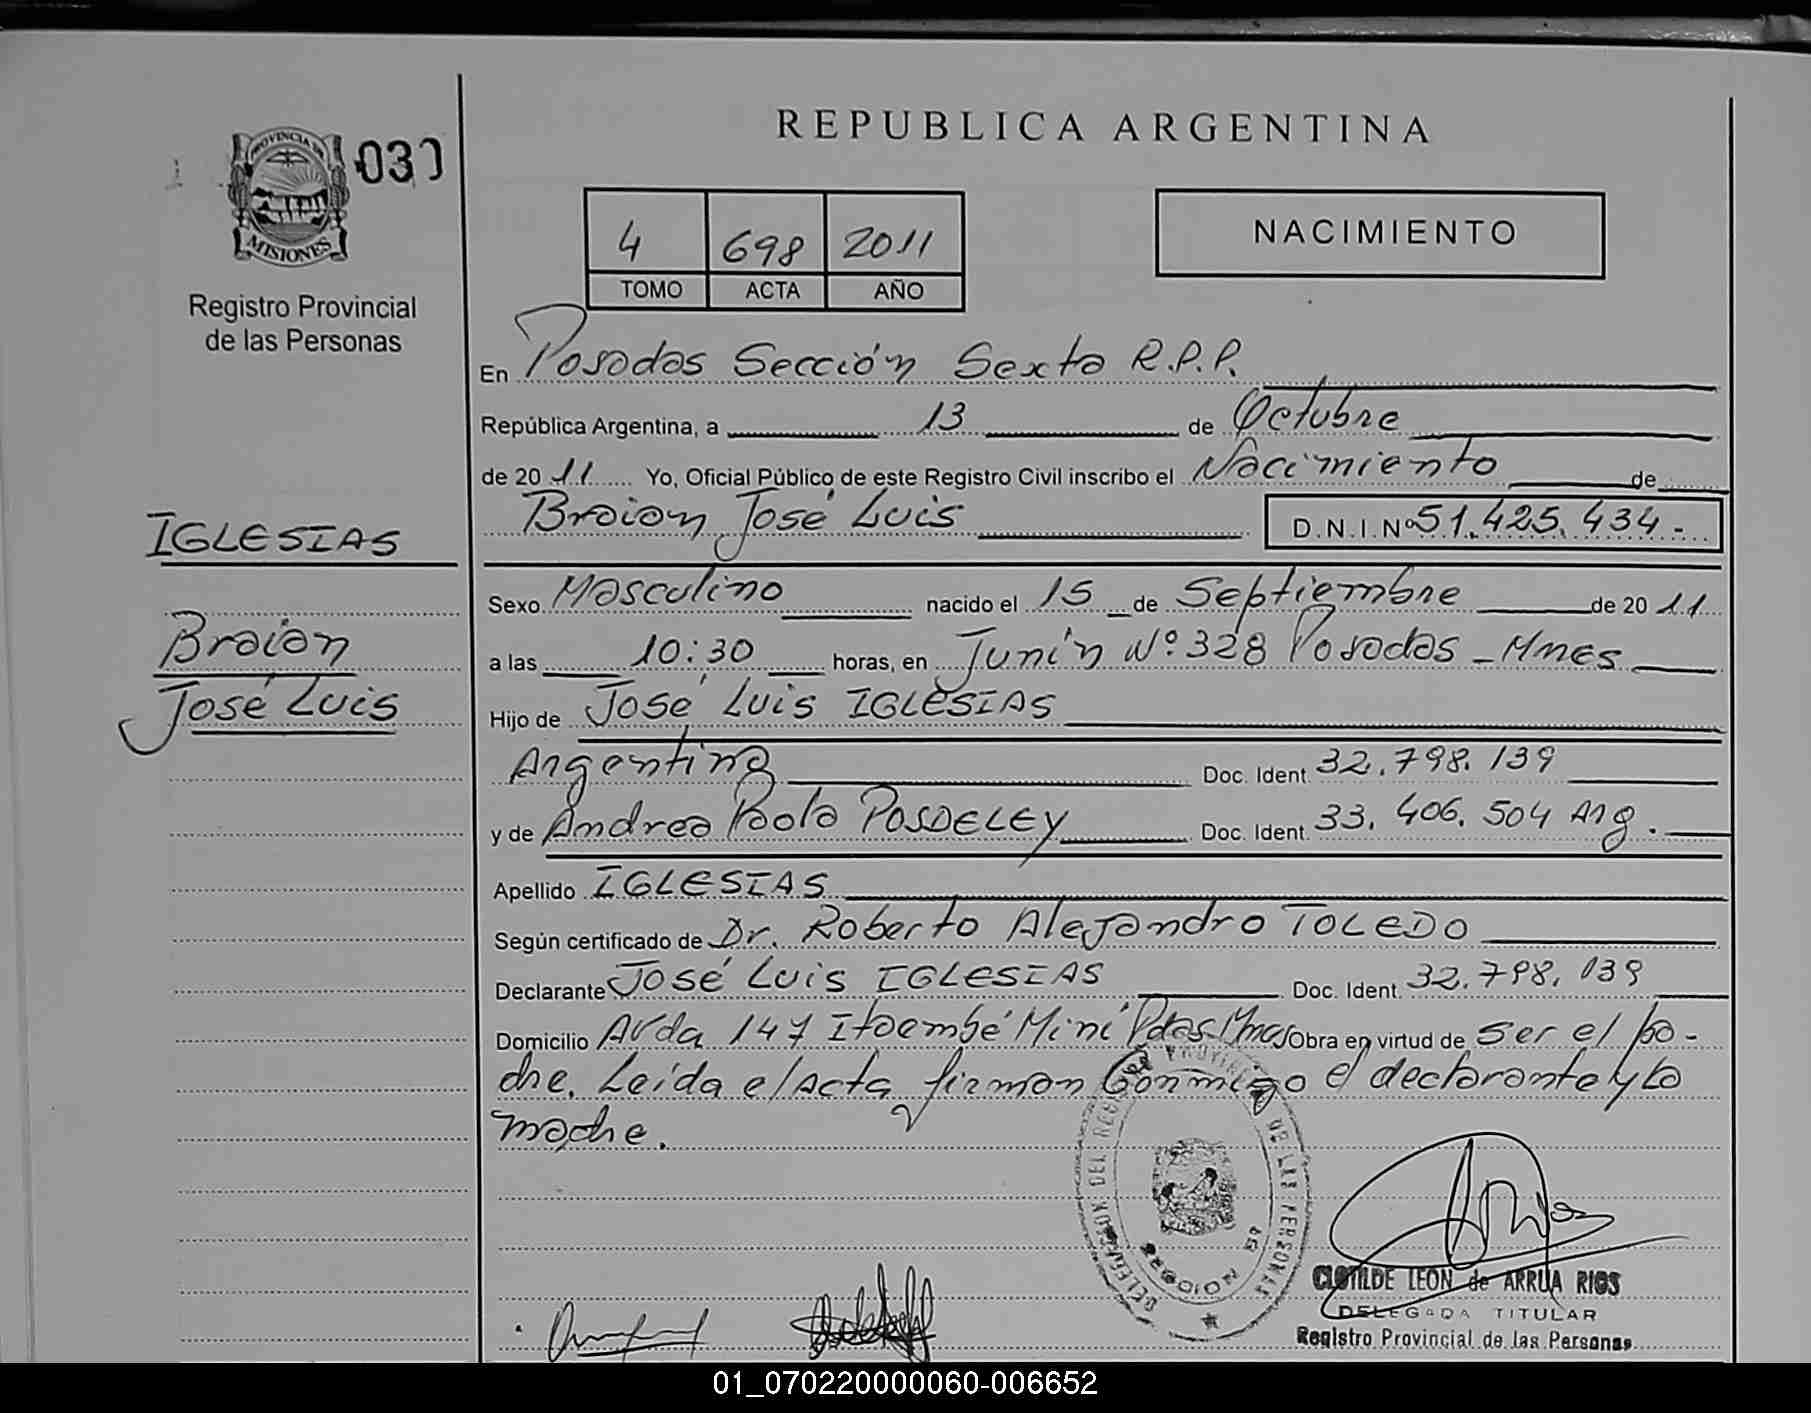 REPUBLICA ARGENTINA
PROVINCIA DE
MISIONES
030
Registro Provincial
de las Personas
4 698 2011
TOMO ACTA AÑO
NACIMIENTO
En Posadas Sección Sexta R.P.P.
República Argentina, a 13 de Octubre
de 2011 Yo, Oficial Público de este Registro Civil inscribo el Nacimiento de
Braian José Luis D.N.I. Nº 51.425.434.-
IGLESIAS
Braian
José Luis
Sexo Masculino nacido el 15 de Septiembre de 2011
a las 10:30 horas, en Junín Nº 328 Posadas - Mnes
Hijo de José Luis IGLESIAS
Argentina Doc. Ident. 32.798.139
y de Andrea Paola POSDELEY Doc. Ident. 33.406.504 Arg.
Apellido IGLESIAS
Según certificado de Dr. Roberto Alejandro TOLEDO
Declarante José Luis IGLESIAS Doc. Ident. 32.798.139
Domicilio Avda 147 Itaembé Miní Pdas Mnes Obra en virtud de ser el pa-
dre. Leída el Acta, firman conmigo el declarante y la
madre.
CLOTILDE LEON de ARRUA RIOS
DELEGADA TITULAR
Registro Provincial de las Personas
01_070220000060-006652